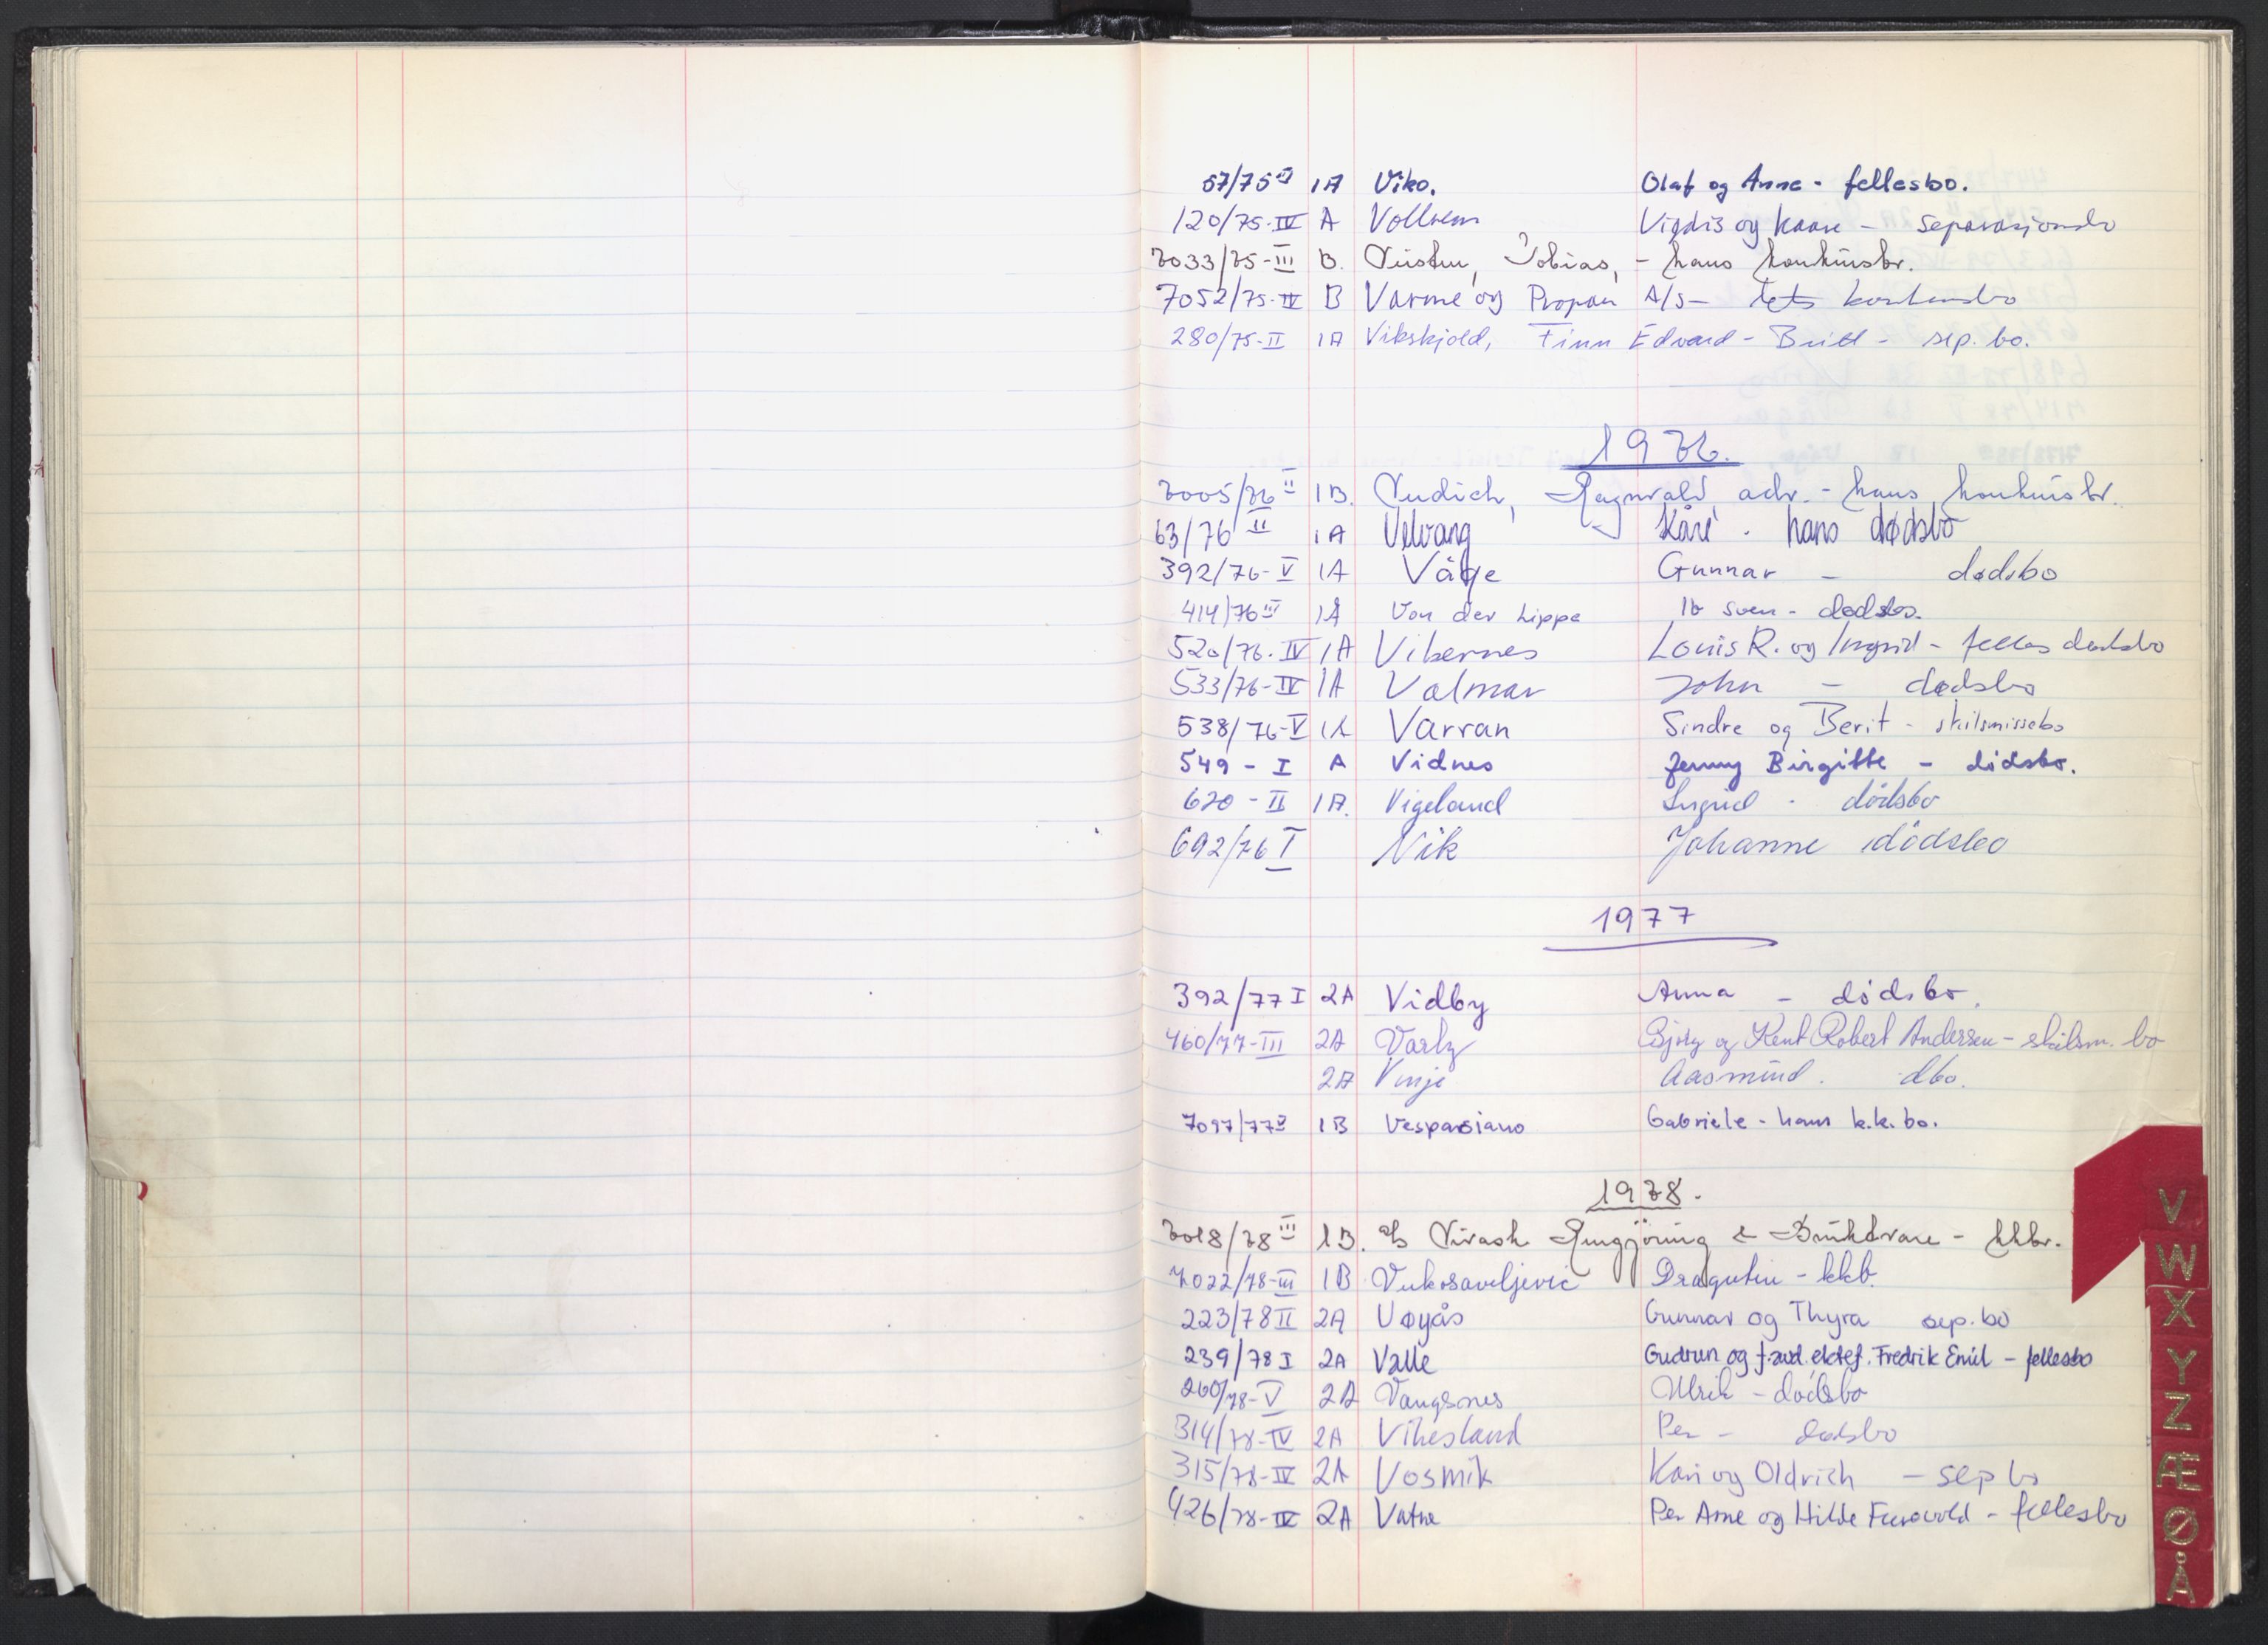 57/75 1A Viko. Olaf og Anne - fellesbo.
120/75-IV A Vollrem Vigdis og Kaare - separasjonsbo
7033/75-III B. Tobias, - hans konkursbr.
7052/75-IV B Varme og Propan A/S - konkursbo
280/75-II 1A Vikskjold, Finn Edvard - Britt - sep. bo.
1976.
7005/76 II 1B. Ragnvald adv. - hans konkursbr.
63/76 II 1A Velvang Kåre - hans dødsbo
392/76-V 1A Våge Gunnar - dødsbo
414/76 III 1A Von der Lippe Ib Sven - dødsbo.
520/76-IV 1A Vibernes Louis R. og Ingrid - felles dødsbo
533/76-IV 1A Valmar John - dødsbo
538/76-V 1A Varran Sindre og Berit - skilsmissebo
549 - I A Vidnes Jenny Birgitte - dödsbo.
620 - II 1A. Vigeland Ingrid - dödsbo
692/76 I Vik Johanne dödsbo
1977
392/77 I 2A Vidby Anna - dödsbo.
460/77-III 2A Varly og Kent Robert Andersen - skilsm. bo
2A Vinje Aasmund. dbo.
7097/77 1B Vespasiano Gabriele - hans k.k. bo.
1978.
7018/78 III 1B. A/S Virask Rengjöring & Bruktvare - kkbr.
7022/78-III 1B Vukosaveljevic Dragutin - kkb.
223/78 II 2A Vøyås Gunnar og Thyra sep. bo
239/78 I 2A Valle Gudrun og Fredrik Emil - fellesbo
260/78-V 2A Vangsnes Ulrik - dödsbo
314/78-IV 2A Vikesland Per - dødsbo
315/78-IV 2A Vosmik Kari og Oldrich - sep bo
426/78-IV 2A Vatne Per Arne og Hilde Furevold - fellesbo
V
W
X
Y
Z
Æ
Ø
Å